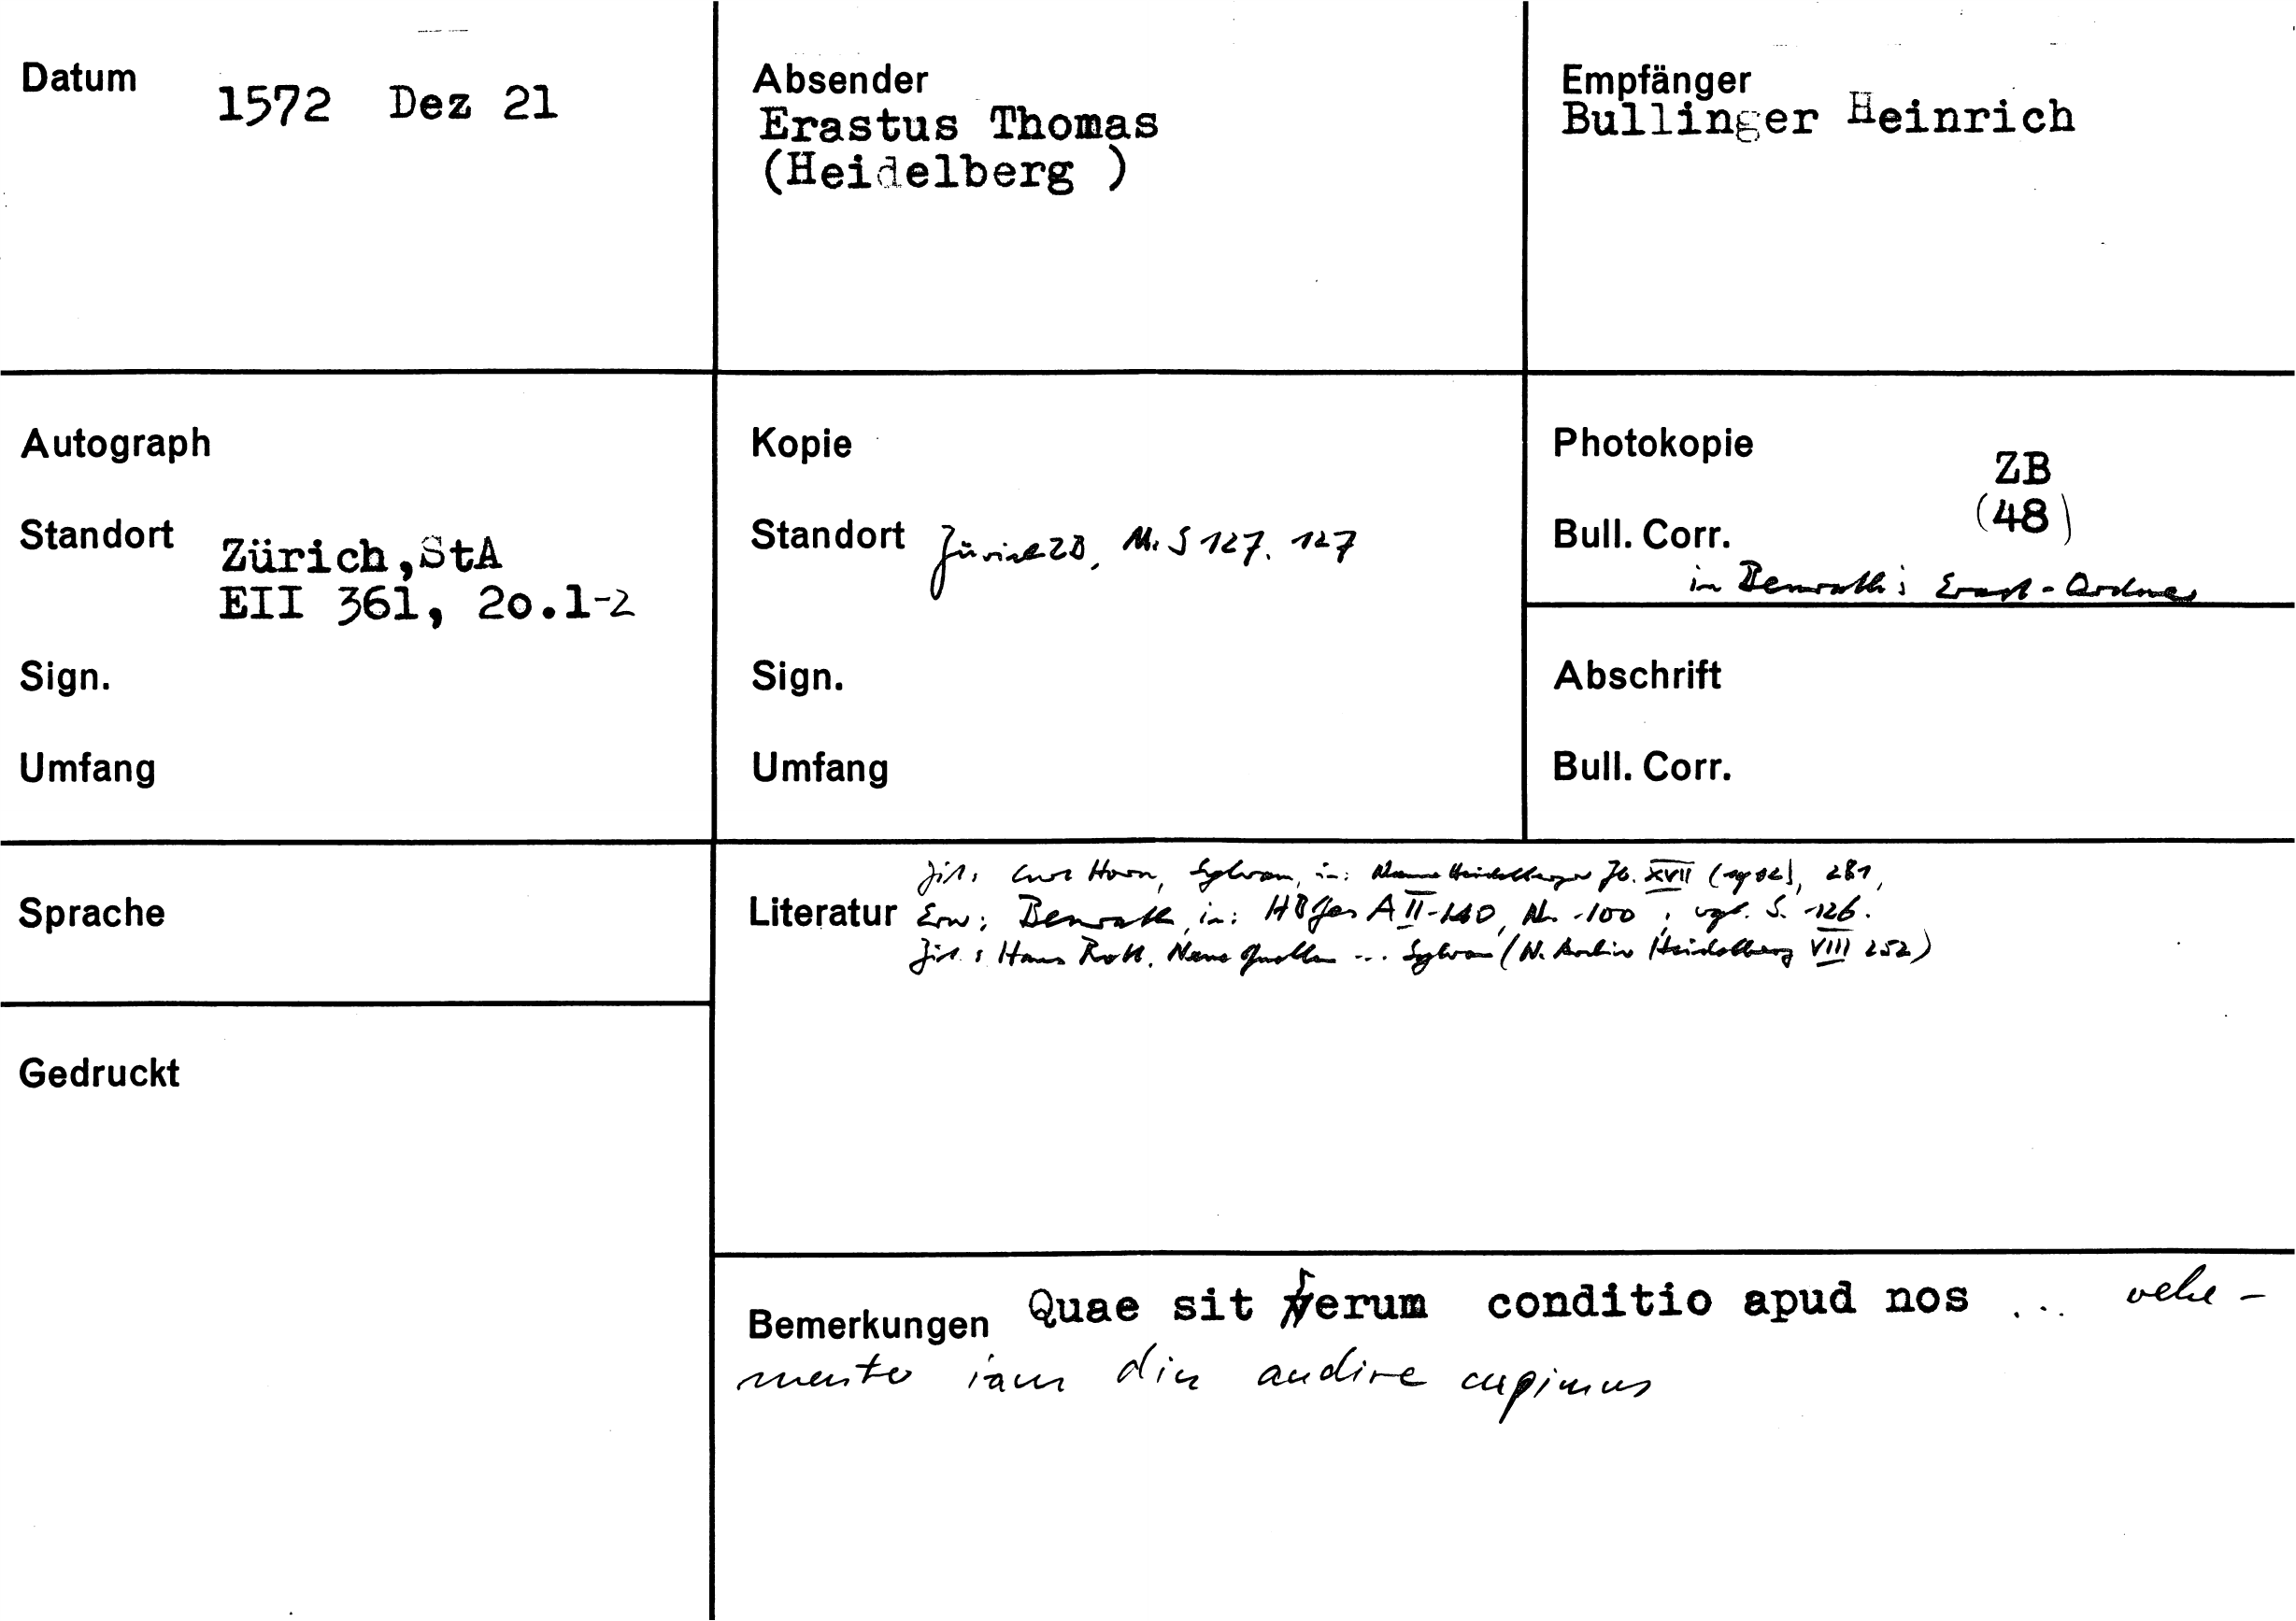 Datum 1572 Dez 21
Absender
Erastus Thomas
(Heidelberg )
Empfänger
Bullinger Heinrich
Autograph
Standort Zürich,StA
EII 361, 2o.1-2
Sign.
Umfang
Kopie
Standort Zürich ZB, Ms S 127. 127
Sign.
Umfang
Photokopie ZB
(48)
Bull. Corr.
in Benrath's Erast-Ordner
Abschrift
Bull. Corr.
Sprache
Gedruckt
Zit: Curt Horn, Sylvan, in: Neue Heidelberger Jb. XVII 281,
Literatur Erw: Benrath, in: A II-140, Nr. 100, vgl. S. 126.
Zit: Hans Rott, Neue Quellen ... Sylvan (N. Archiv Heidelberg VIII 252)
Bemerkungen Quae sit rerum conditio apud nos ... vehe-
menter iam diu audire cupimus